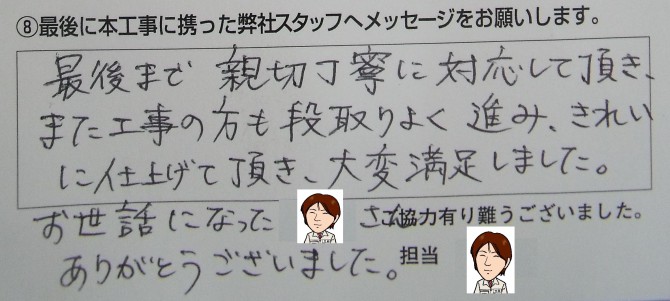 ⑧最後に本工事に携った弊社スタッフへメッセージをお願いします。
最後まで 親切丁寧に 対応して頂き、
また工事の方も段取りよく 進み、きれい
に仕上げて頂き、大変満足しました。
お世話になった さん ご協力有り難うございました。
ありがとうございました。 担当